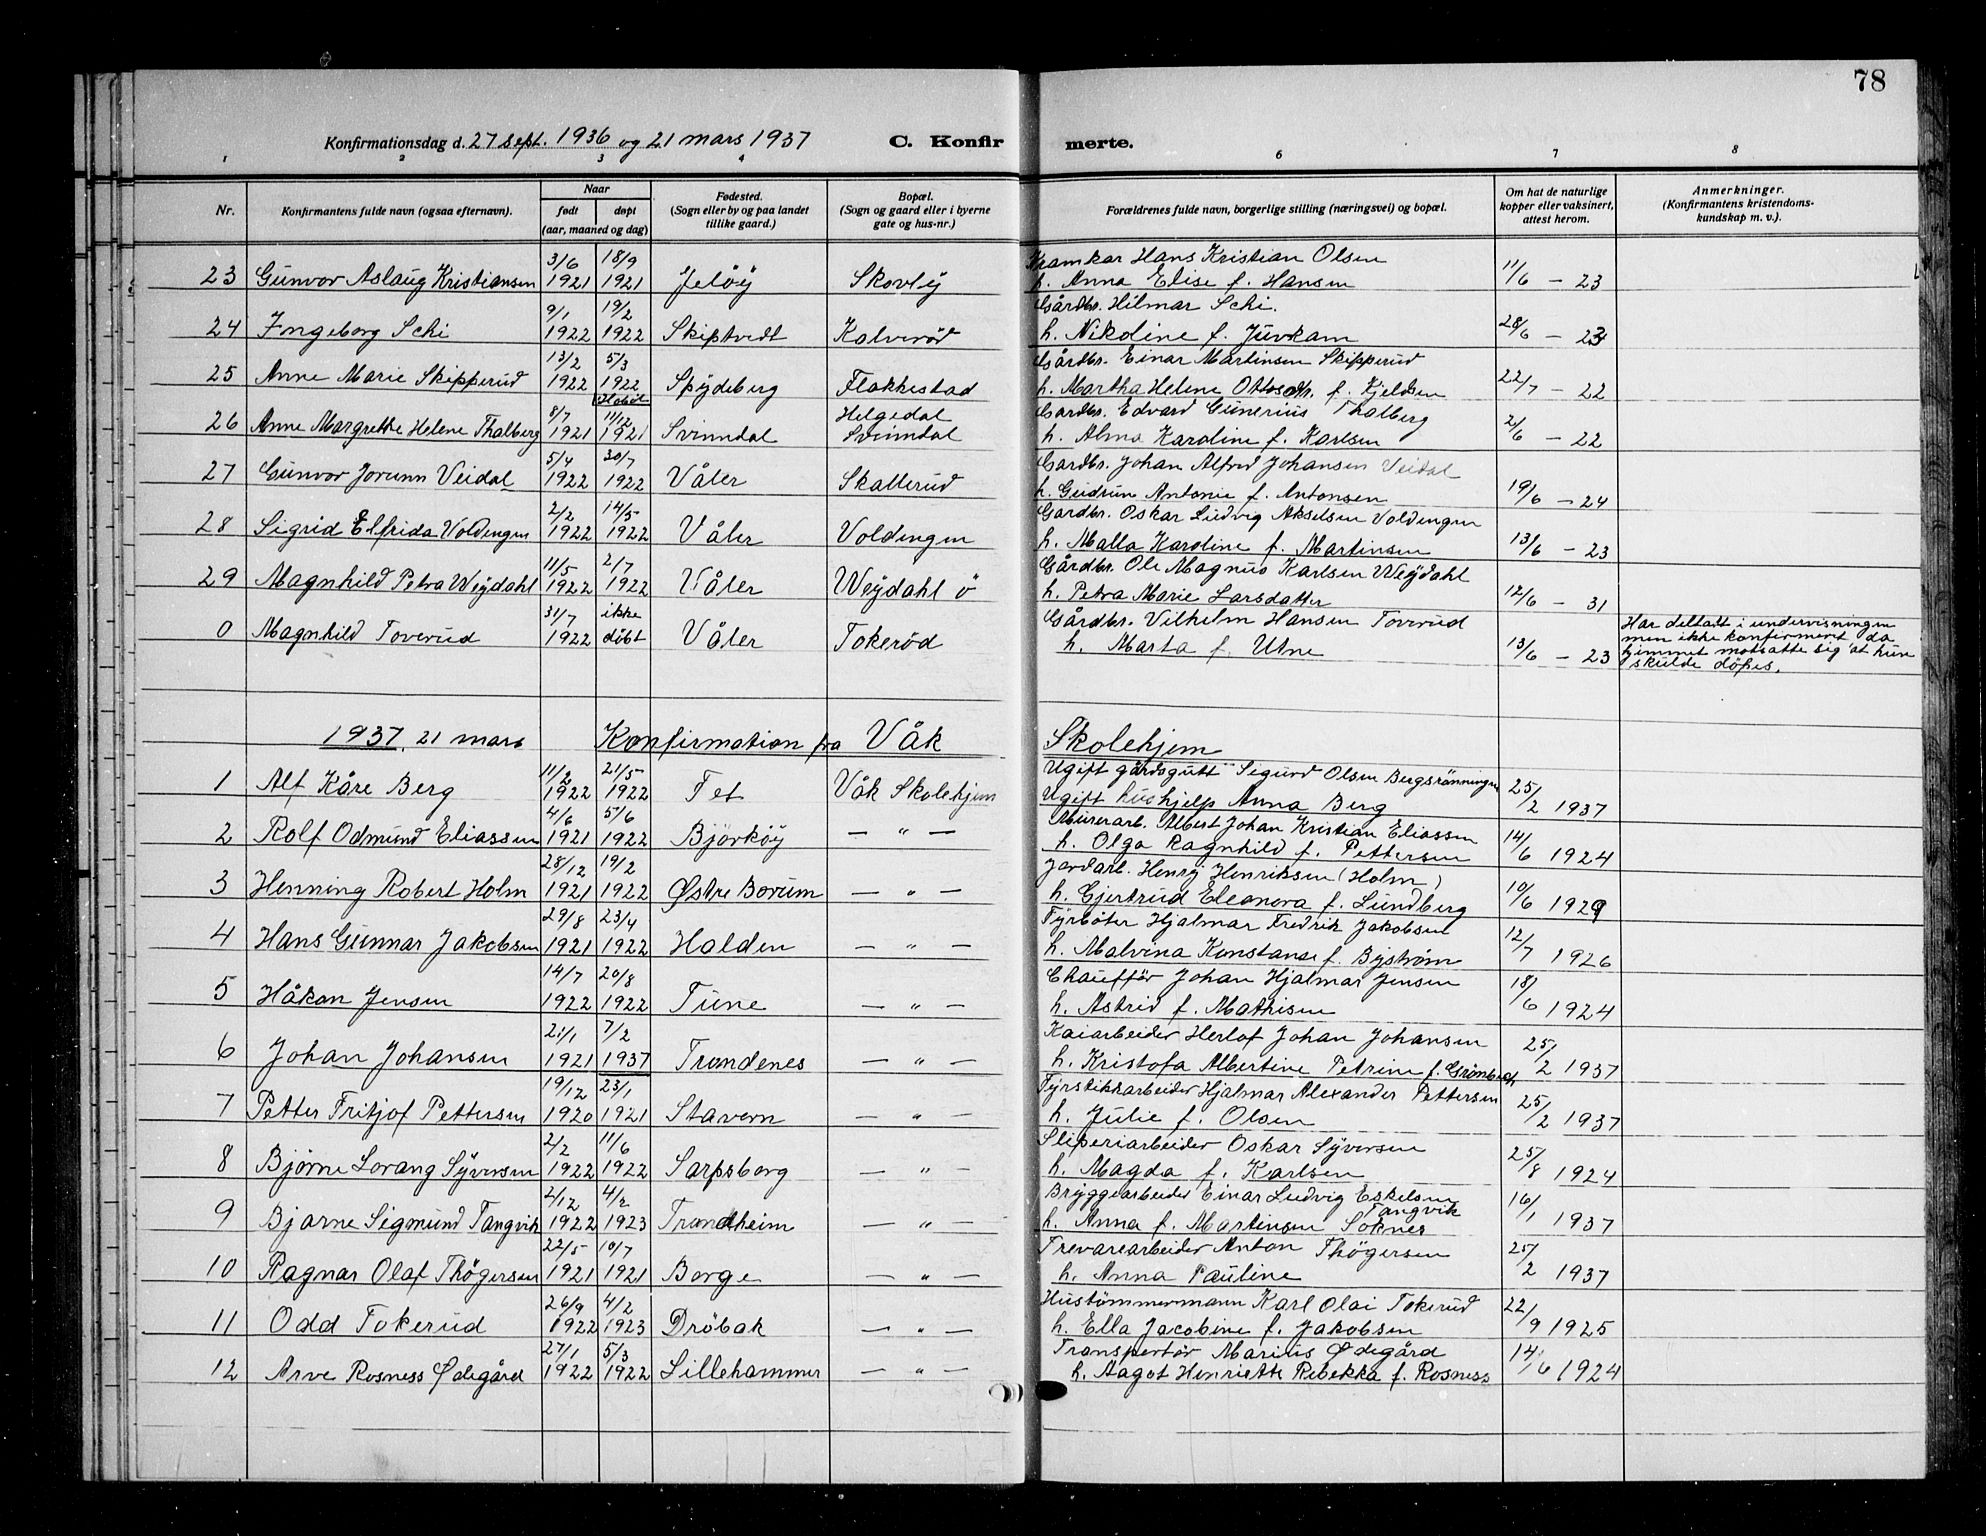 78
Konfirmationsdag d. 27 sept. 1936 og 21 mars 1937 C. Konfirmerte.
1 2 3 4 6 7 8
Nr. Konfirmantens fulde navn (ogsaa efternavn). Naar født døpt (aar, maaned og dag) Fødested. (Sogn eller by og paa landet tillike gaard.) Bopæl. (Sogn og gaard eller i byerne gate og hus-nr.) Forældrenes fulde navn, borgerlige stilling (næringsvei) og bopæl. Om hat de naturlige kopper eller vaksinert, attest herom. Anmerkninger. (Konfirmantens kristendomskundskap m. v.).
3/6 18/9 Kramkar Hans Kristian Olsen
23 Gunvor Aslaug Kristiansen 1921 1921 Jeløy Skovly h. Anna Elise f. Hansen 11/6 – 23
9/1 19/2 Gårdbr. Hilmar Schi.
24 Ingeborg Schi 1922 1922 Skiptvedt Kolverød h. Nikoline f. Juvkam 28/6 – 23
13/2 5/3 Gårdbr. Einar Martinsen Skipperud
25 Anne Marie Skipperud 1922 1922 Spydeberg Flakkestad h. Martha Helene Ottosdtr. f. Kjeldsen 22/7 – 22
8/7 Hobøl 11/12 Helgedal Gårdbr. Edvard Gunerius Thalberg
26 Anne Margrethe Helene Thalberg 1921 1921 Svinndal Svinndal h. Alma Karoline f. Karlsen 2/6 – 22
5/4 30/7 Gårdbr. Johan Alfred Johansen Veidal
27 Gunvor Jorunn Veidal 1922 1922 Våler Skallerud h. Gudrun Antonie f. Antonsen 19/6 – 24
2/2 14/5 Gårdbr. Oskar Ludvig Akselsen Voldengen
28 Sigrid Elfrida Voldengen 1922 1922 Våler Voldengen h. Malla Karoline f. Martinsen 13/6 – 23
11/5 2/7 Gårdbr. Ole Magnus Karlsen Weydahl
29 Magnhild Petra Weydahl 1922 1922 Våler Weydahl ö h. Petra Marie Larsdatter 12/6 – 31
31/7 ikke Gårdbr. Vilhelm Hansen Toverud
0 Magnhild Toverud 1922 døbt Våler Tokerød h. Marta f. Utne 13/6 – 23
Har deltatt i undervisningen
men ikke konfirmeret da
hjemmet motsatte sig at hun
skulde döpes.
1937, 21 mars Konfirmation fra Våk Skolehjem
11/2 21/5 Ugift gårdsgutt Sigurd Olsen Bergsrønningen
1 Alf Kåre Berg 1922 1922 Fet Våk Skolehjem Ugift hushjelp Anna Berg 25/2 1937
4/6 5/6 Murerarb. Albert Johan Kristian Eliassen
2 Rolf Odmund Eliassen 1921 1922 Bjørkøy — " — h. Olga Ragnhild f. Pettersen 14/6 1924
28/12 19/2 Jordarb. Henry Henriksen (Holm)
3 Henning Robert Holm 1921 1922 Østre Borum — " — h. Gjertrud Eleonora f. Lundberg 10/6 1929
29/8 23/4 Fyrbøter Hjalmar Fredrik Jakobsen
4 Hans Gunnar Jakobsen 1921 1922 Halden — " — h. Malvina Konstanse f. Byström 12/7 1926
14/7 20/8 Chauffør Johan Hjalmar Jensen
5 Håkon Jensen 1922 1922 Tune — " — h. Astrid f. Mathisen 18/6 1924
21/1 7/2 Kaiarbeider Herlof Johan Johansen
6 Johan Johansen 1921 1937 Trondenes — " — h. Kristofa Albertine Petrine f. Grønbech 25/2 1937
19/12 23/1 Fyrstikkarbeider Hjalmar Alexander Pettersen
7 Petter Fritjof Pettersen 1920 1921 Stavern — " — h. Julie f. Olsen 25/2 1937
2/2 11/6 Sliperiarbeider Oskar Syversen
8 Bjørne Lorang Syversen 1922 1922 Sarpsborg — " — h. Magda f. Karlsen 25/8 1924
2/12 4/2 Bryggearbeider Einar Ludvig Eskelsen Tangvik
9 Bjarne Sigmund Tangvik 1922 1923 Trondheim — " — h. Anna f. Martinsen Soknes 16/1 1937
22/5 10/7 Trevarearbeider Anton Thögersen
10 Ragnar Olaf Thögersen 1921 1921 Borge — " — h. Anna Pauline 25/2 1937
26/9 4/2 Hustömmermann Karl Olai Tokerud
11 Odd Tokerud 1922 1923 Dröbak — " — h. Ella Jacobine f. Jakobsen 22/9 1925
27/1 5/3 Transportör Marius Ødegård
12 Arve Rosness Ødegård 1922 1922 Lillehammer — " — h. Aagot Henriette Rebekka f. Rosness 14/6 1924